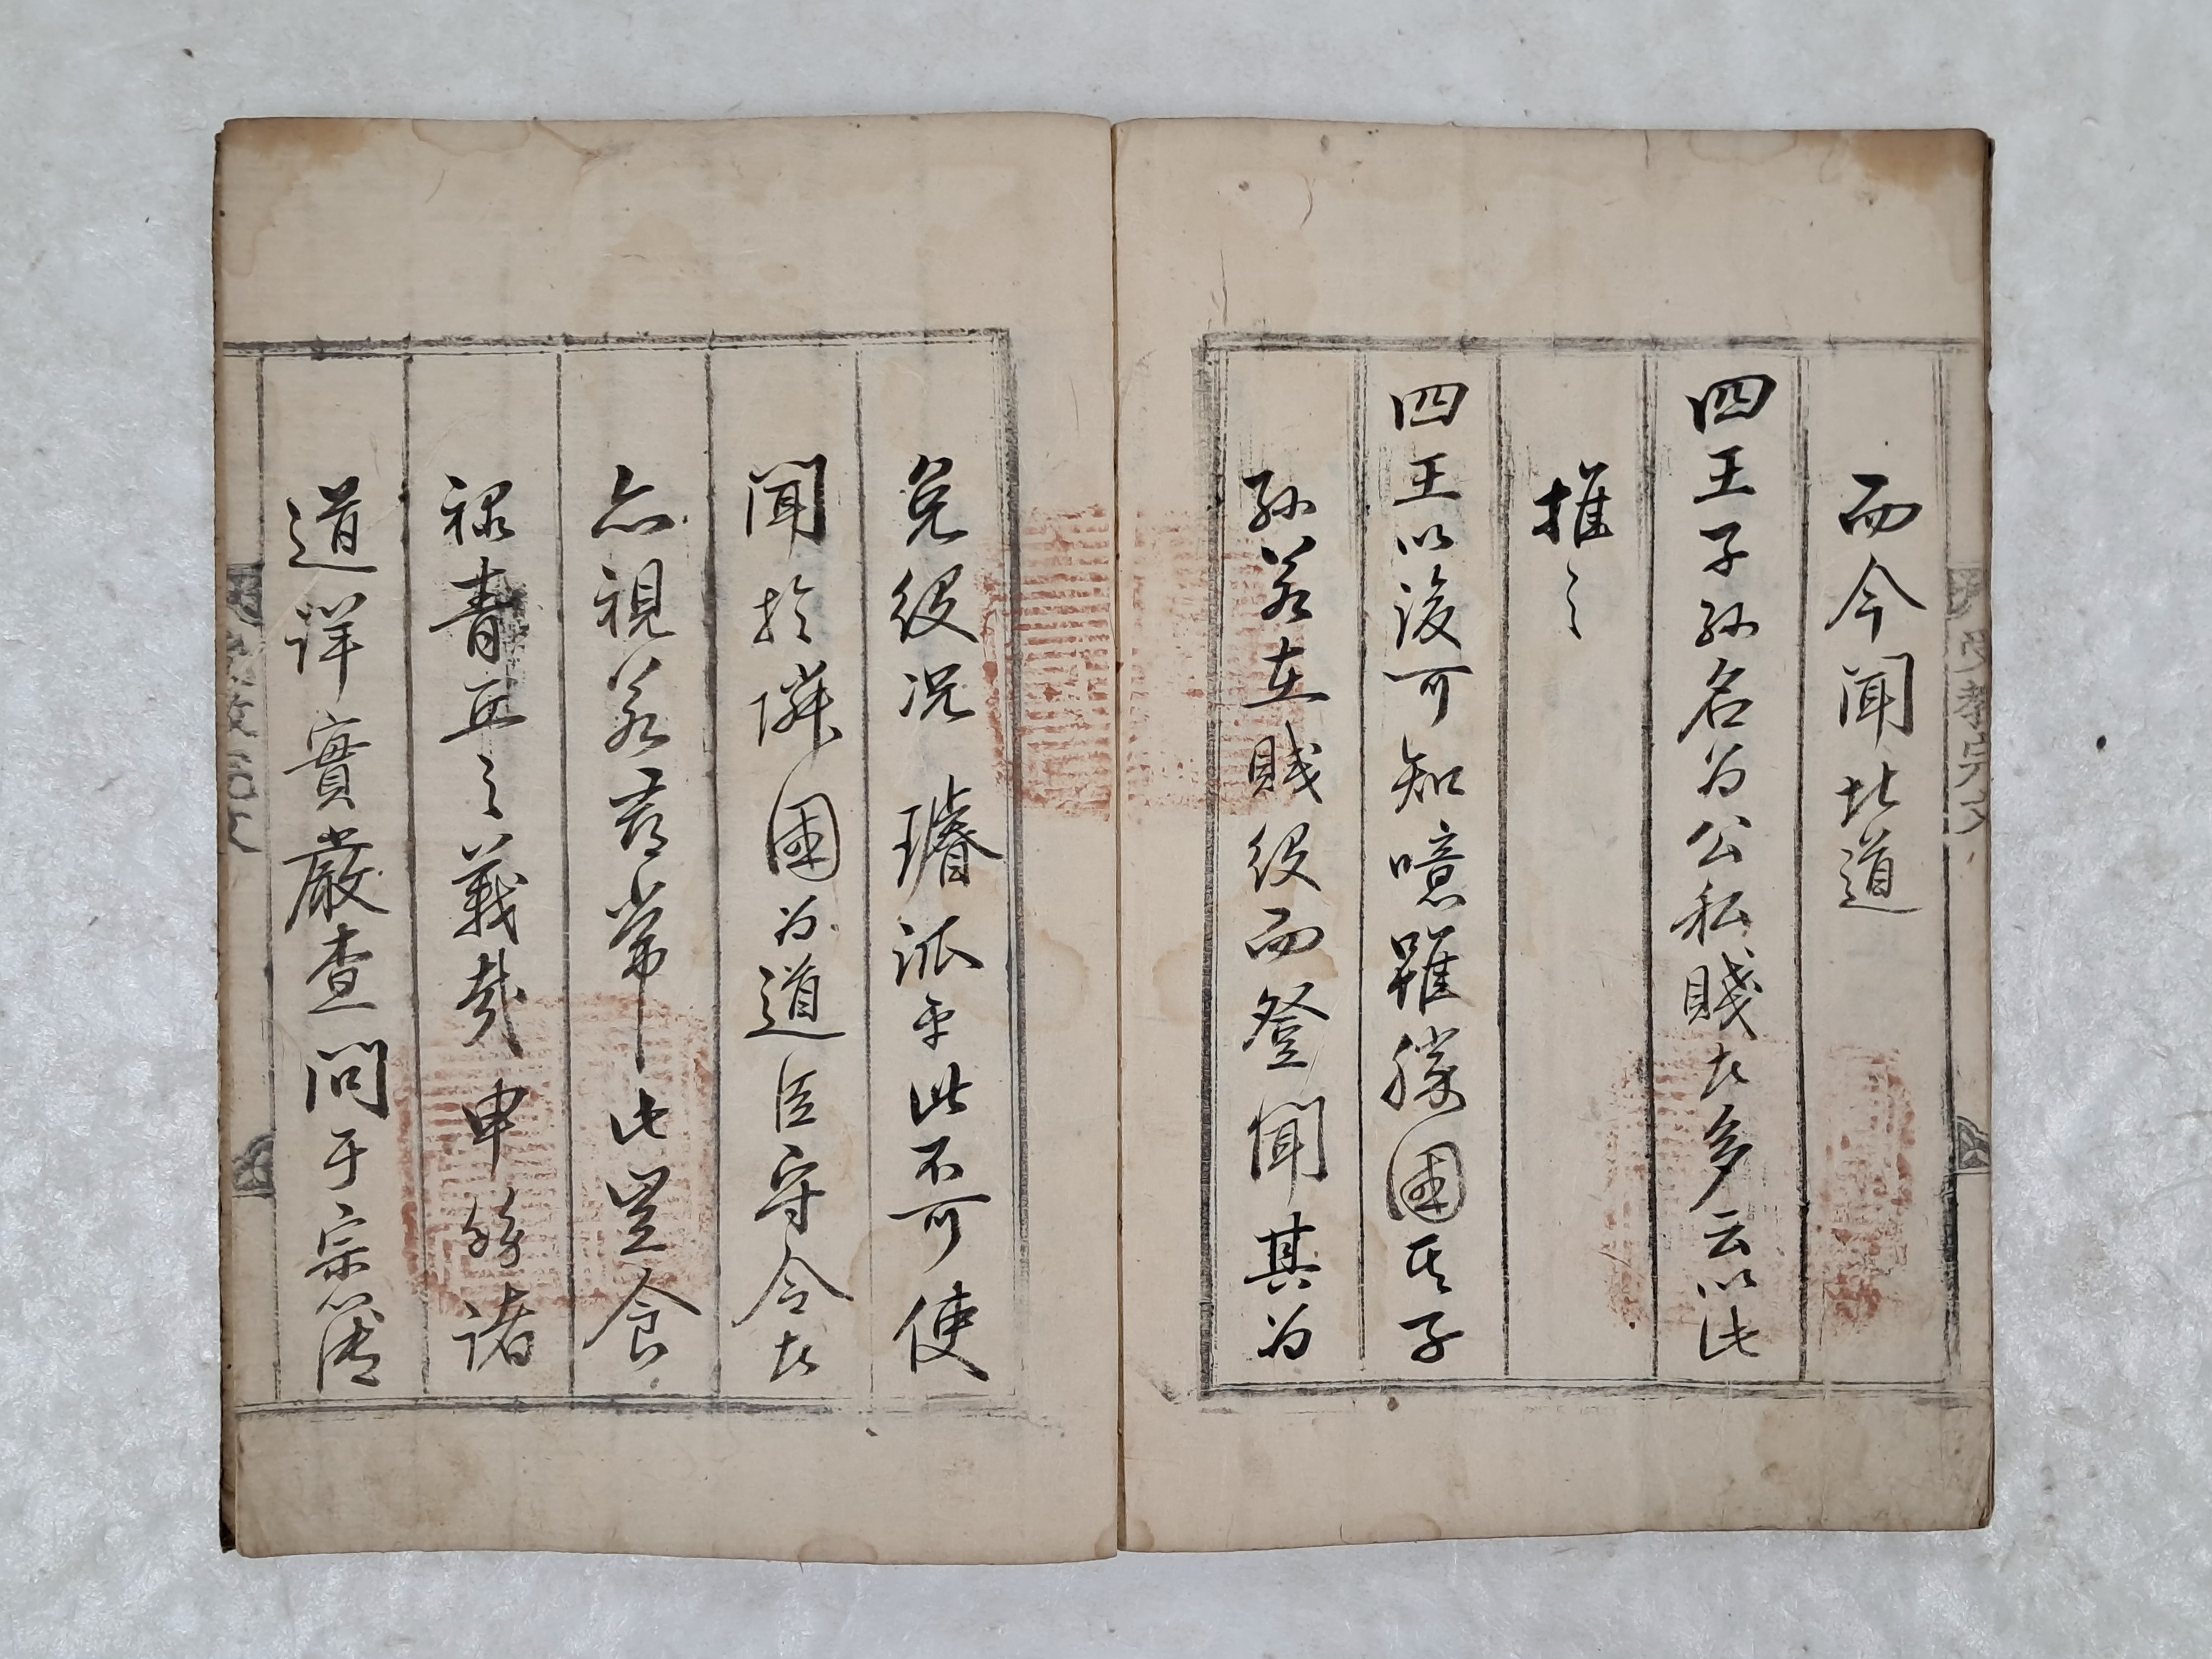 而今聞北道
四王子孫名爲公私賤者多云以此
推之
四王以後可知噫雖勝國王子
孫若在賤役而登聞其爲
免役況璿派乎此不可使
聞於隣國爲道臣守令者
亦視若尋常此豈食
祿者臣之義哉申飭諸
道詳實嚴查問于宗簿